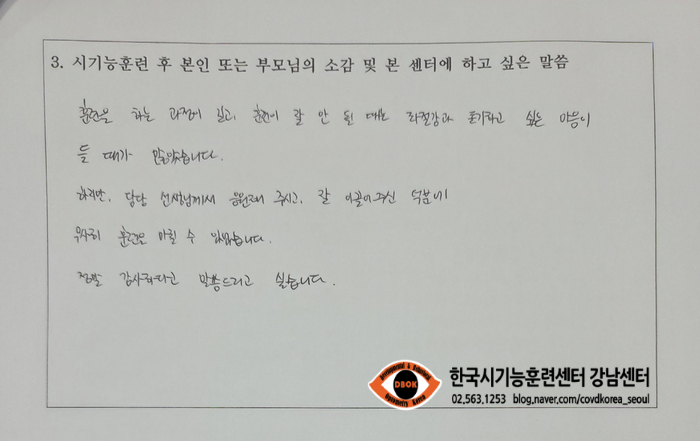 3. 시기능훈련 후 본인 또는 부모님의 소감 및 본 센터에 하고 싶은 말씀
훈련을 하는 과정이 길고, 훈련이 잘 안 될 때는 좌절감과 포기하고 싶은 마음이
들 때가 많았습니다.
하지만, 담당 선생님께서 응원해 주시고, 잘 이끌어주신 덕분에
무사히 훈련을 마칠 수 있었습니다.
정말 감사하다고 말씀드리고 싶습니다.
Developmental & Behavioral
DBOK
Optometry Korea
한국시기능훈련센터 강남센터
02.563.1253 blog.naver.com/covdkorea_seoul